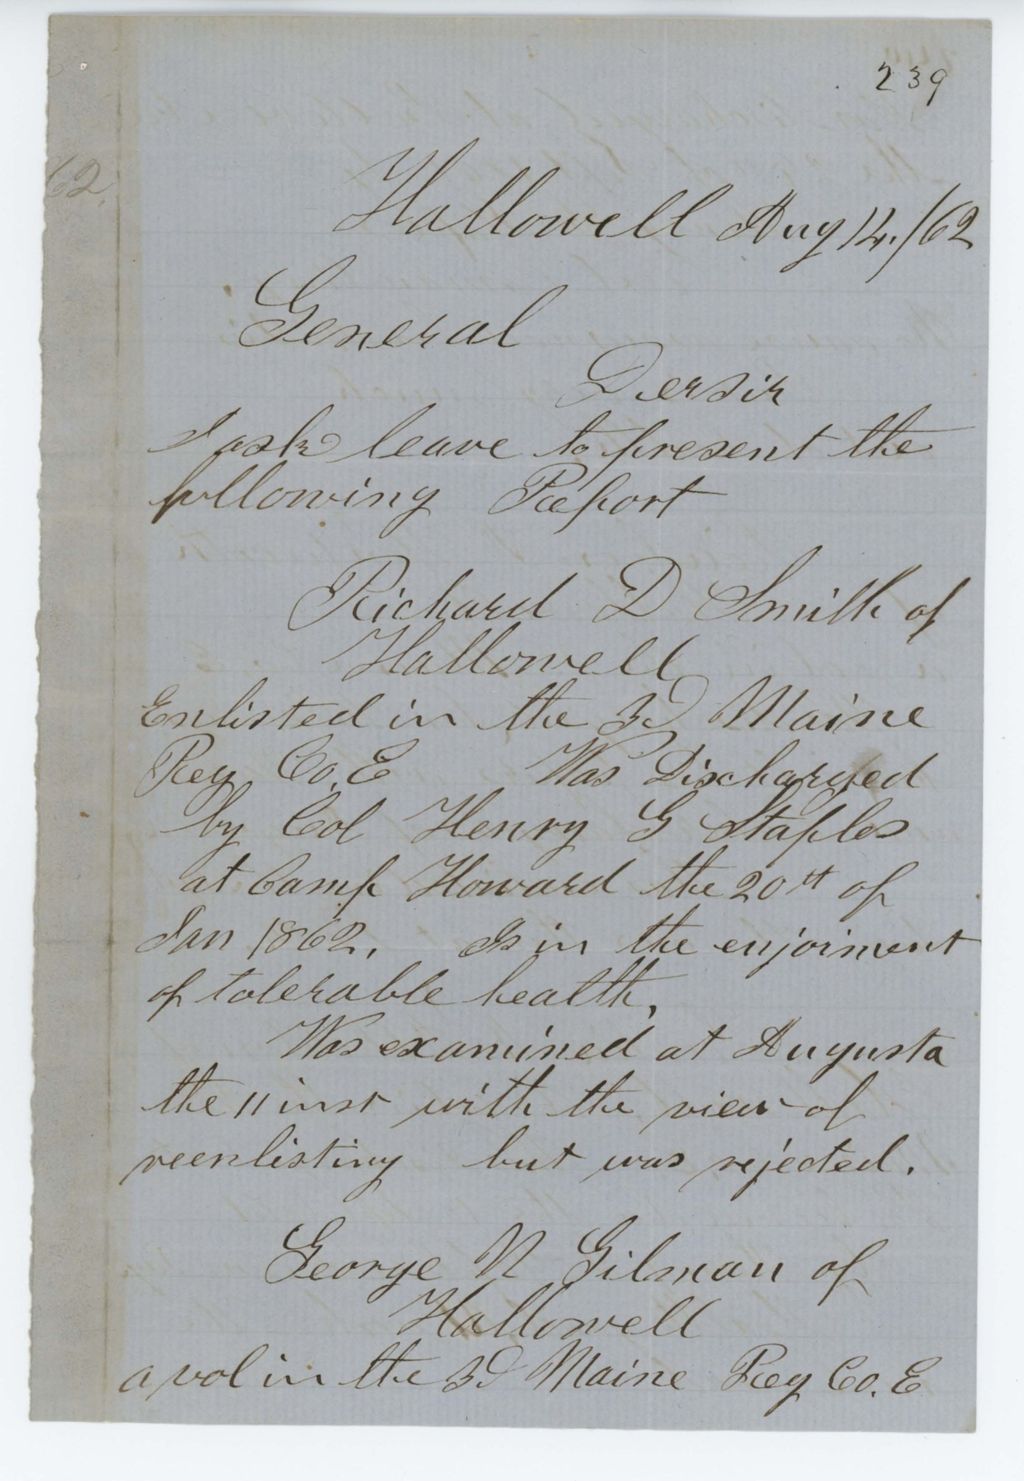 239
62.
Hallowell Aug 14./62
General
Dersir
I ask leave to present the
following Report
Richard D Smith of
Hallowell
Enlisted in the 3d Maine
Reg Co. E Was Discharged
by Col Henry G Staples
at Camp Howard the 20th of
Jan 1862. Is in the enjoiment
of tolerable health.
Was examined at Augusta
the 11 inst with the view of
reenlisting but was rejected.
George N Gilman of
Hallowell
a vol in the 3d Maine Reg Co. E